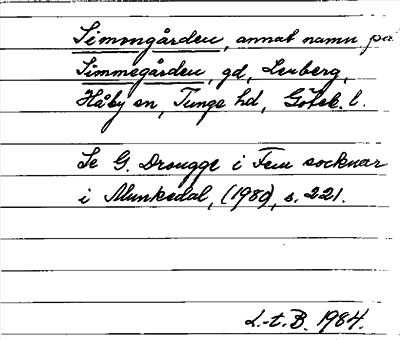 Simongården, annat namn på
Simmegården, gd, Lerberg,
Håby sn, Tunge hd, Götek. l.
Se G. Drougge i Fem socknar
i Munkedal, (1980), s. 221.
L.-t. B. 1984.